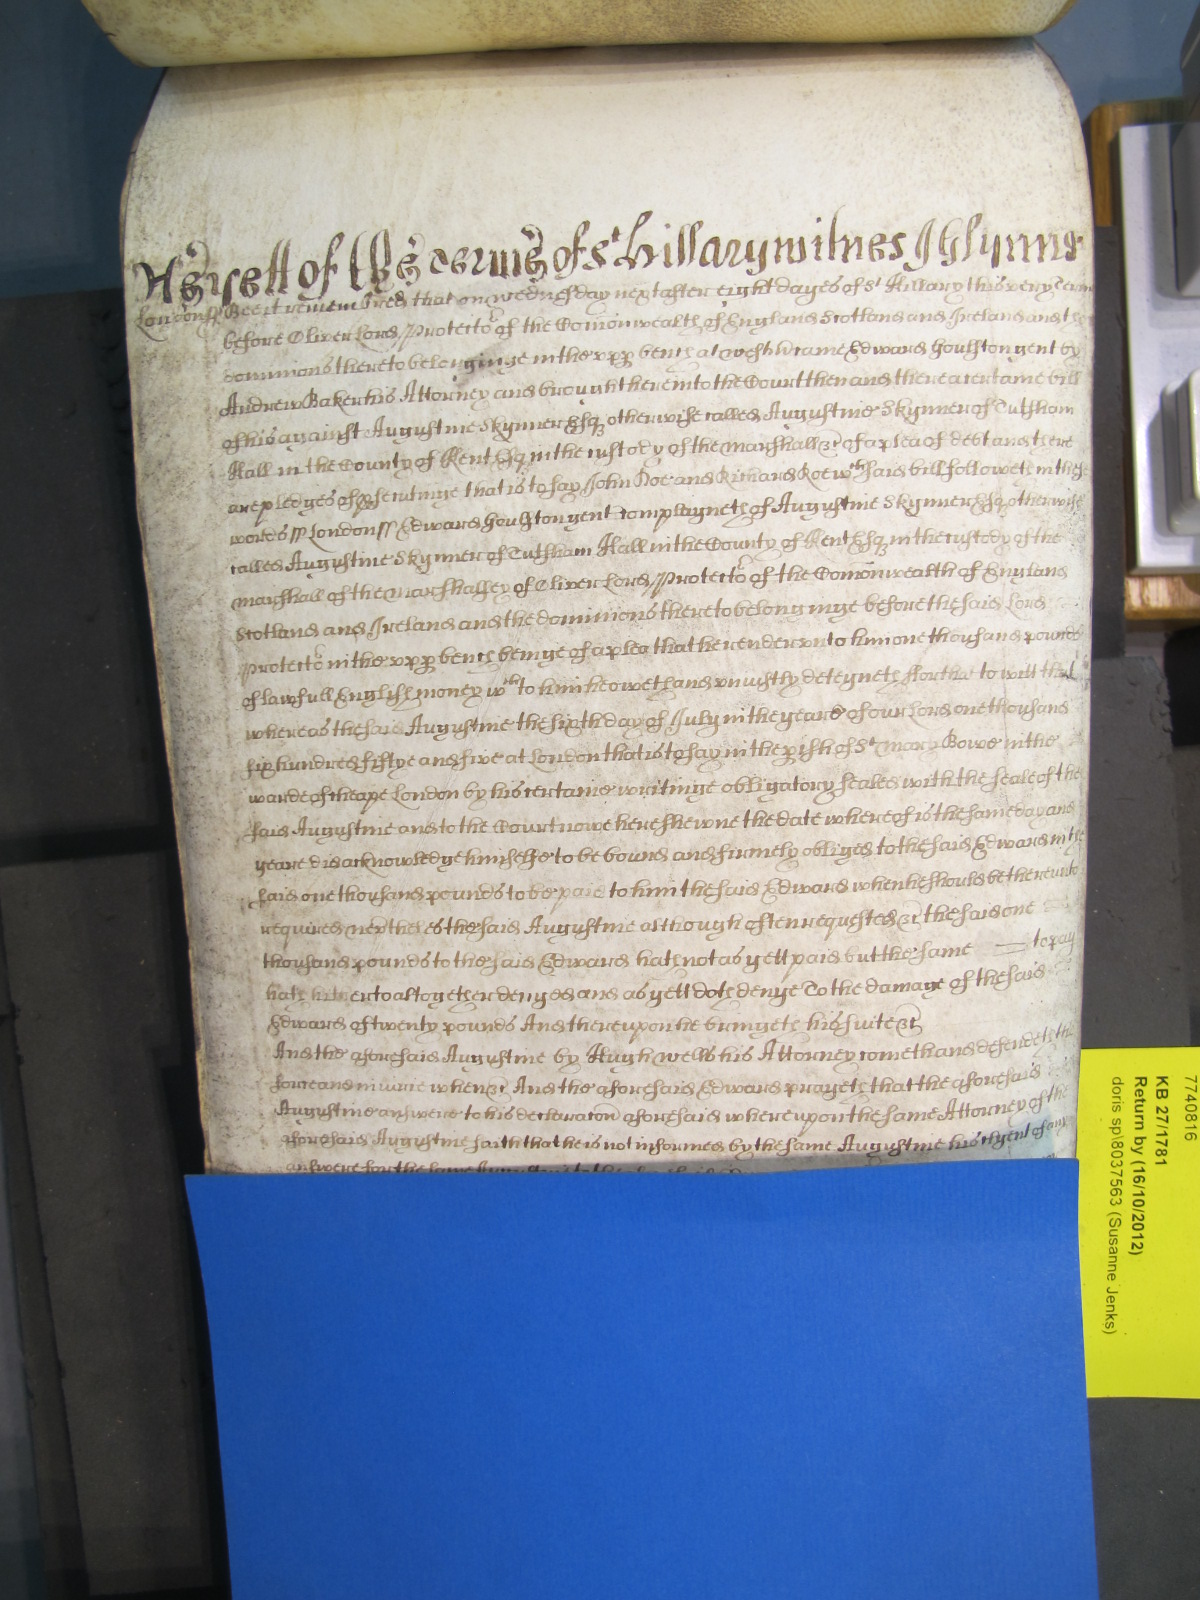 As yett of the terme of St Hillary witnes J Glynne
London ss Bee it remembred that on wednesday next after eight dayes of St Hillary this very
before Oliver Lord Protector of the Comonwealth of England Scotland and Ireland and the
dominions thereto belonginge in the upp bench at westm came Edward Houlston gent by
Andrew Baker his Attorney and brought here into the Court then and there a certaine bill
of his against Augustine Skynner Esq otherwise called Augustine Skynner of Tutsham
Hall in the County of Kent Esq in the custody of the marshall &c of a plea of debt and there
are pledges of psecutinge that is to say John Doe and Richard Roe wch said bill followeth in these
words ss London ss Edward Houlston gent complayneth of Augustine Skynner Esq otherwise
called Augustine Skynner of Tutsham Hall in the County of Kent Esq in the custody of the
marshall of the marshalsey of Oliver Lord Protector of the Comonwealth of England
Scotland and Ireland and the dominions thereto belonginge before the said Lord
Protector in the upp bench beinge of a plea that he render unto him one thousand pounds
of lawfull English money wch to him he oweth and uniustly deteyneth ffor that to witt that
whereas the said Augustine the sixth day of July in the yeare of our Lord one thousand
six hundred fiftye and five at London that is to say in the pish of St Mary Bowe in the
warde of cheape London by his certaine writinge obligatory sealed with the seale of the
said Augustine and to the Court nowe here shewne the date whereof is the same day and
yeare did acknowledge himselfe to be bound and firmely obliged to the said Edward in the
said one thousand pounds to be paid to him the said Edward when he should be thereunto
required neverthelesthe said Augustine although often requested &c the said one
thousand pounds to the said Edward hath not as yett paid but the same — to pay
hath hitherto altogether denyed and as yett doth denye To the damage of the said
Edward of twenty pounds And thereupon he bringeth his suite &c
And the aforesaid Augustine by Hugh wells his Attorney cometh and defendeth the
force and iniurie when &c And the aforesaid Edward prayeth that the aforesaid
Augustine answere to his declaracon aforesaid whereupon the same Attorney of the
aforesaid Augustine saith that he is not informed by the same Augustine his clyent of any
answere for the same Augustine
7740816
KB 27/1781
Return by (16/10/2012)
doris sp\8037563 (Susanne Jenks)